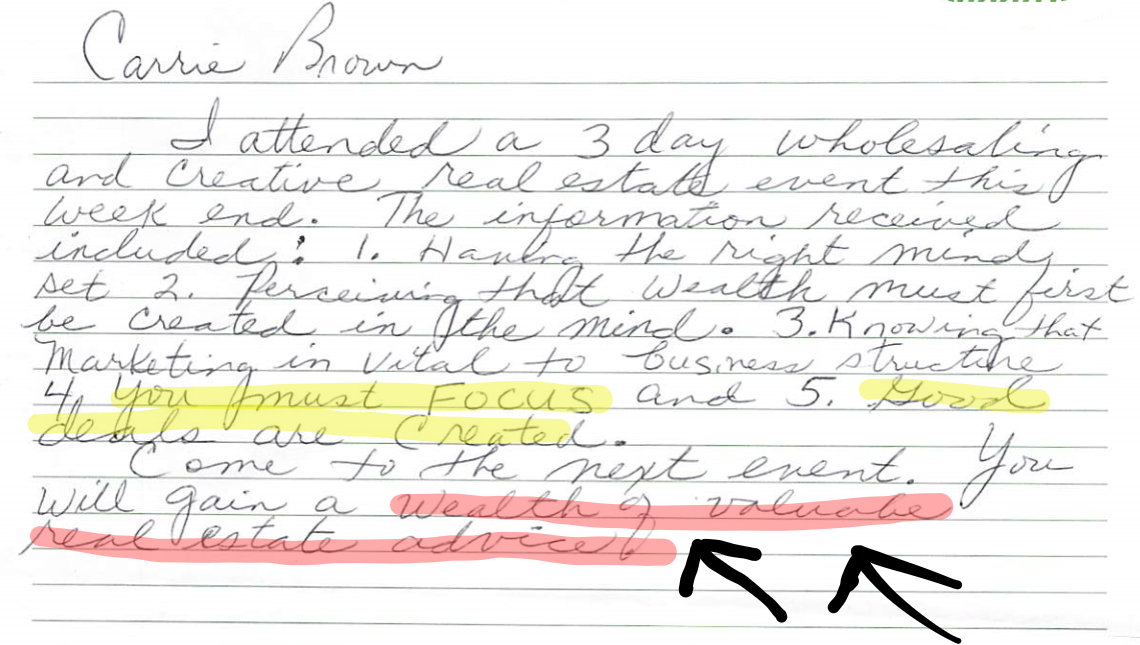 Carrie Brown
I attended a 3 day wholesaling
and creative real estate event this
week end. The information received
included: 1. Having the right mind
set 2. Perceiving that wealth must first
be created in the mind. 3. Knowing that
Marketing in vital to business structure
4. You must FOCUS and 5. Good
deals are Created.
Come to the next event. You
will gain a wealth of valuabe
real estate advice.